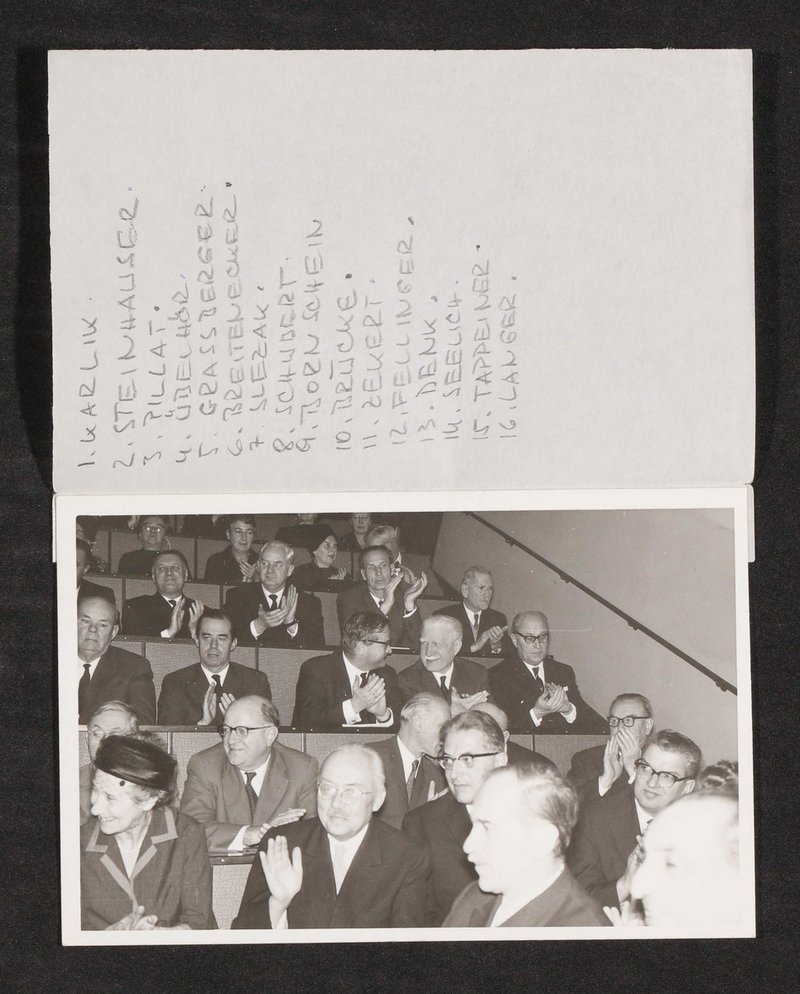 1. KARLIK.
2. STEINHAUSER.
3. PILLAT.
4. ÜBELHÖR.
5. GRASSBERGER.
6. BREITENECKER.
7. SLEZAK.
8. SCHUBERT.
9. BORNSCHEIN
10. BRÜCKE.
11. ZEKERT.
12. FELLINGER.
13. DENK.
14. SEELICH.
15. TAPPEINER.
16. LANGER.